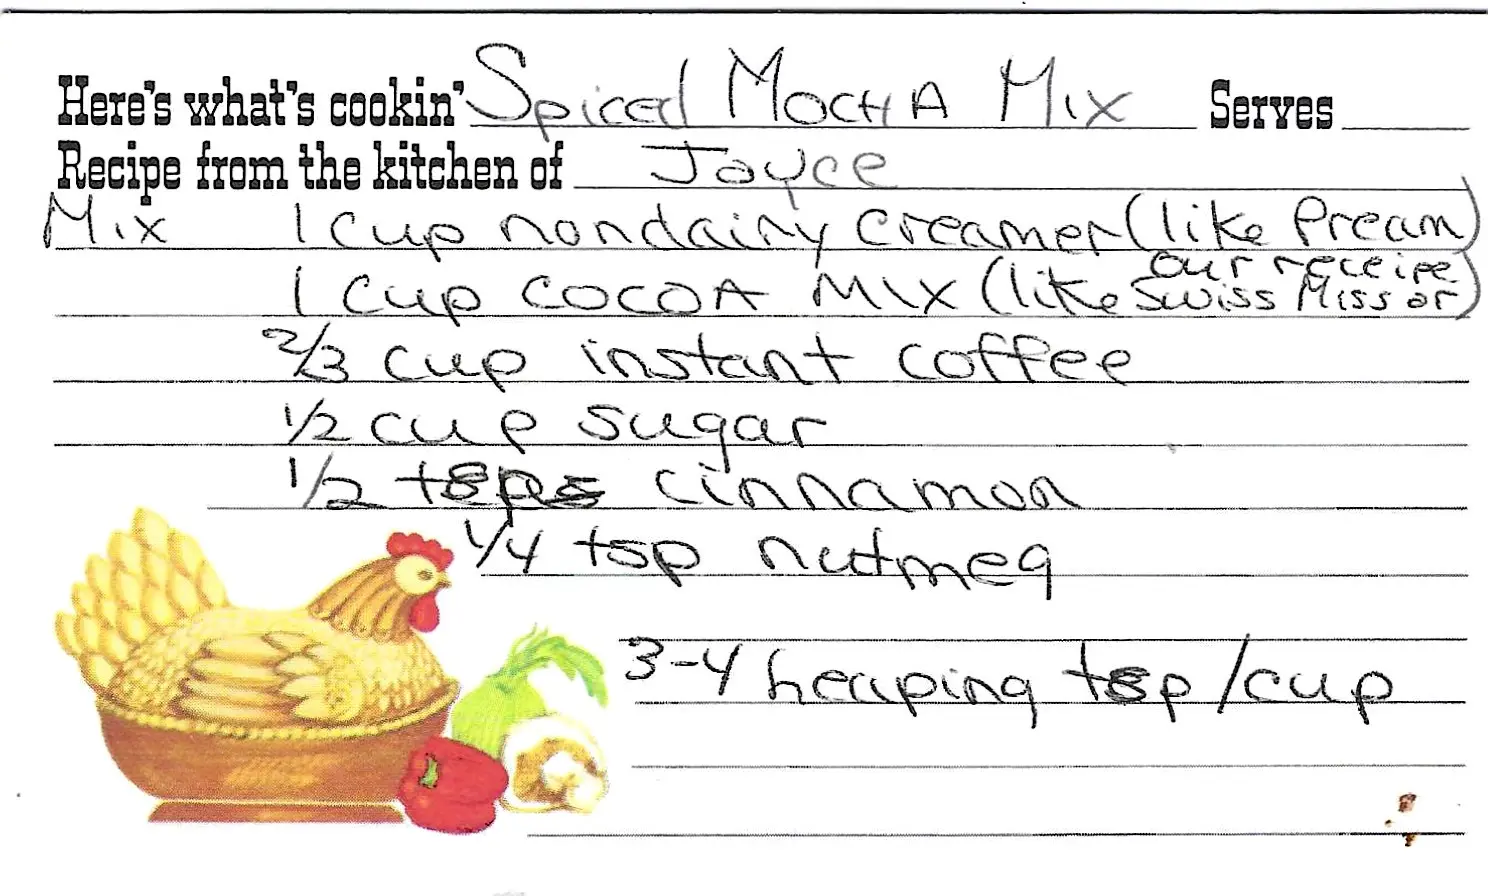 Here's what's cookin' Spiced Mocha Mix Serves
Recipe from the kitchen of Joyce
Mix 1 cup nondairy creamer (like Pream)
1 cup cocoa mix (like Swiss Miss or our receipe)
2/3 cup instant coffee
1/2 cup sugar
1/2 tsp cinnamon
1/4 tsp nutmeg
3-4 heaping tsp/cup